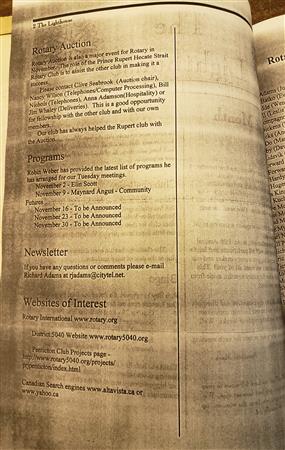 2 The Lighthouse
Rotary Auction
Rotary Auction is also a major event for Rotary in
November. The role of the Prince Rupert Hecate Strait
Rotary Club is to assist the other club in making it a
success.
Please contact Clive Seabrook (Auction chair),
Nancy Wilson (Telephones/Computer Processing), Bill
Nichols (Telephones), Anna Adamson(Hospitality) or
Jim Whaley (Deliveries). This is a good oppourtunity
for fellowship with the other club and with our own
members.
Our club has always helped the Rupert club with
the Auction.
Programs
Robin Weber has provided the latest list of programs he
has arranged for our Tuesday meetings.
November 2 - Elin Scott
November 9 - Maynard Angus - Community
Futures
November 16 - To be Announced
November 23 - To be Announced
November 30 - To be Announced
Newsletter
If you have any questions or comments please e-mail
Richard Adams at rjadams@citytel.net.
Websites of Interest
Rotary International www.rotary.org
District 5040 Website www.rotary5040.org
Penticton Club Projects page -
http://www.rotary5040.org/projects/
Canadian Search engines www.altavista.ca or
www.yahoo.ca
Rota